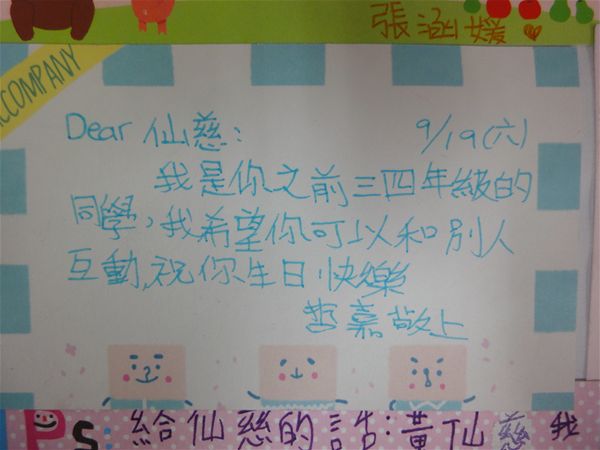 張涵媛
COMPANY
Dear 仙慈: 9/19(六)
我是你之前三四年級的
同學,我希望你可以和別人
互動,祝你生日快樂
哲嘉敬上
Ps: 給仙慈的話:黃仙慈我